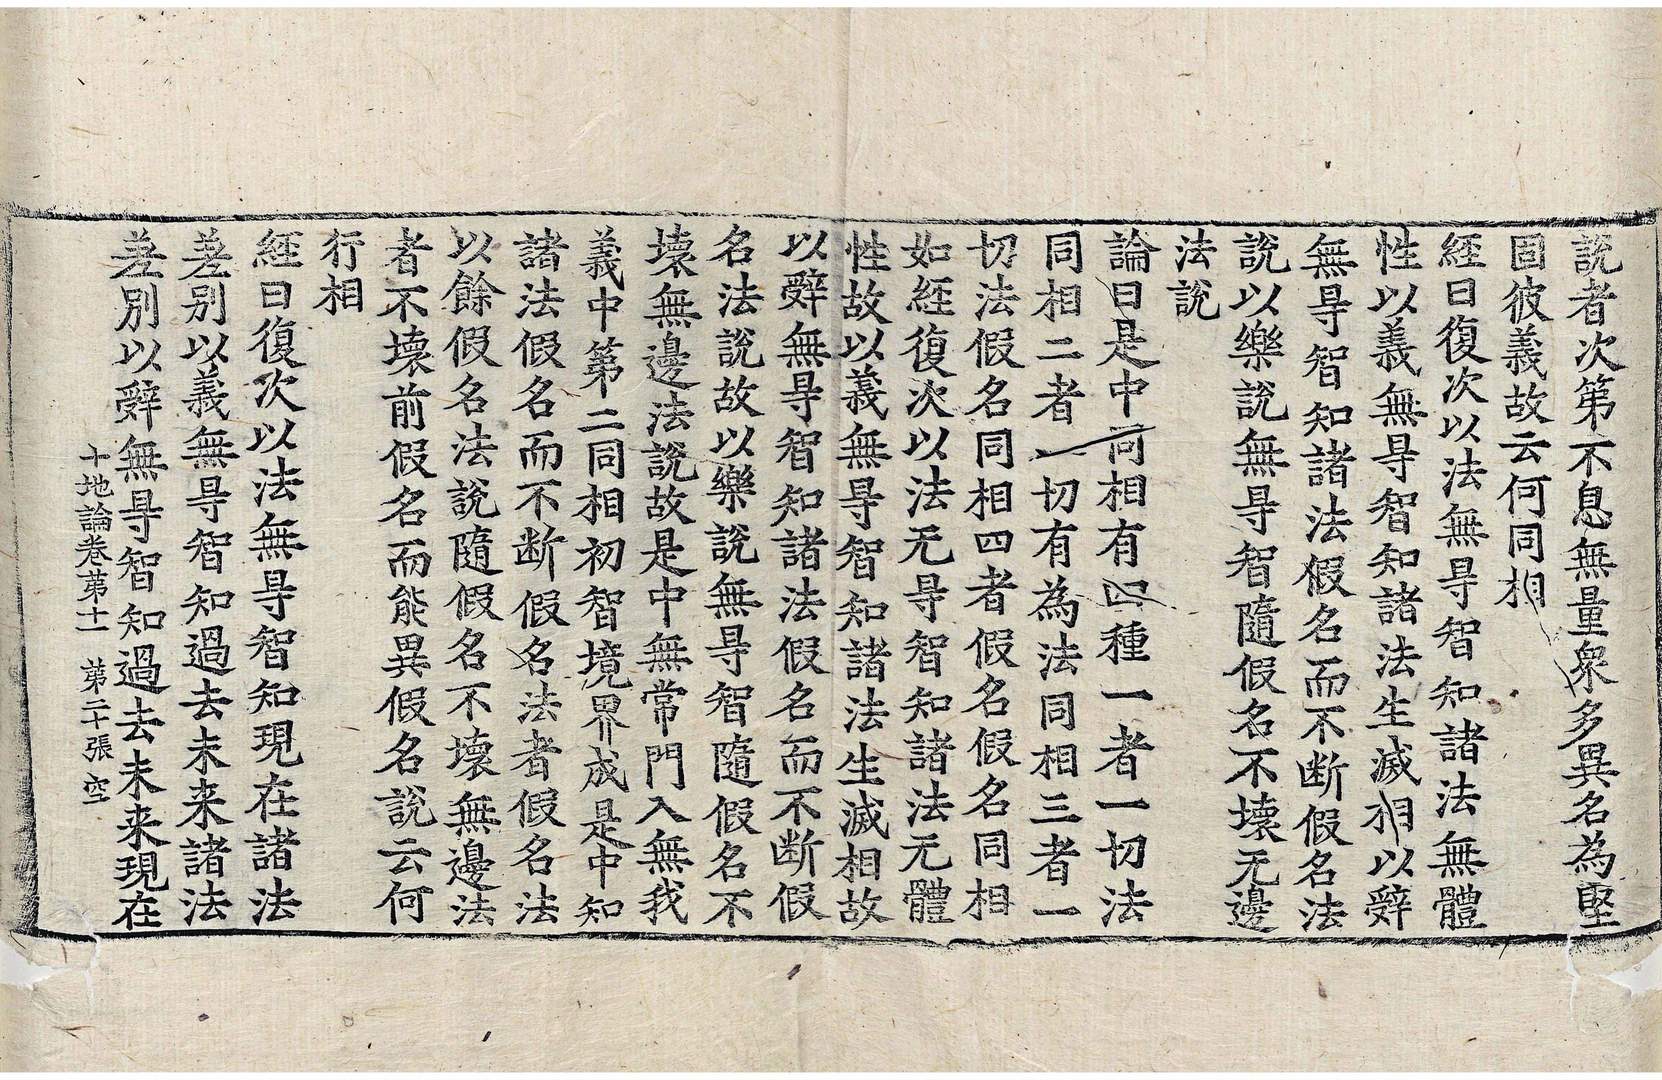 說者次第不息無量衆多異名為堅
固彼義故云何同相
經曰復次以法無㝵智知諸法無體
性以義無㝵智知諸法生滅相以辤
無㝵智知諸法假名而不断假名法
說以樂說無㝵智隨假名不壞无邊
法說
論曰是中同相有四種一者一切法
同相二者一切有為法同相三者一
切法假名同相四者假名假名同相
如經復次以法无㝵智知諸法无體
性故以義無㝵智知諸法生滅相故
以辤無㝵智知諸法假名而不断假
名法說故以樂說無㝵智隨假名不
壞無邊法說故是中無常門入無我
義中第二同相初智境界成是中知
諸法假名而不断假名法者假名法
以餘假名法說隨假名不壞無邊法
者不壞前假名而能異假名說云何
行相
經曰復次以法無㝵智知現在諸法
差別以義無㝵智知過去未来諸法
差別以辤無㝵智知過去未来現在
十地論卷苐十一 第二十張 空